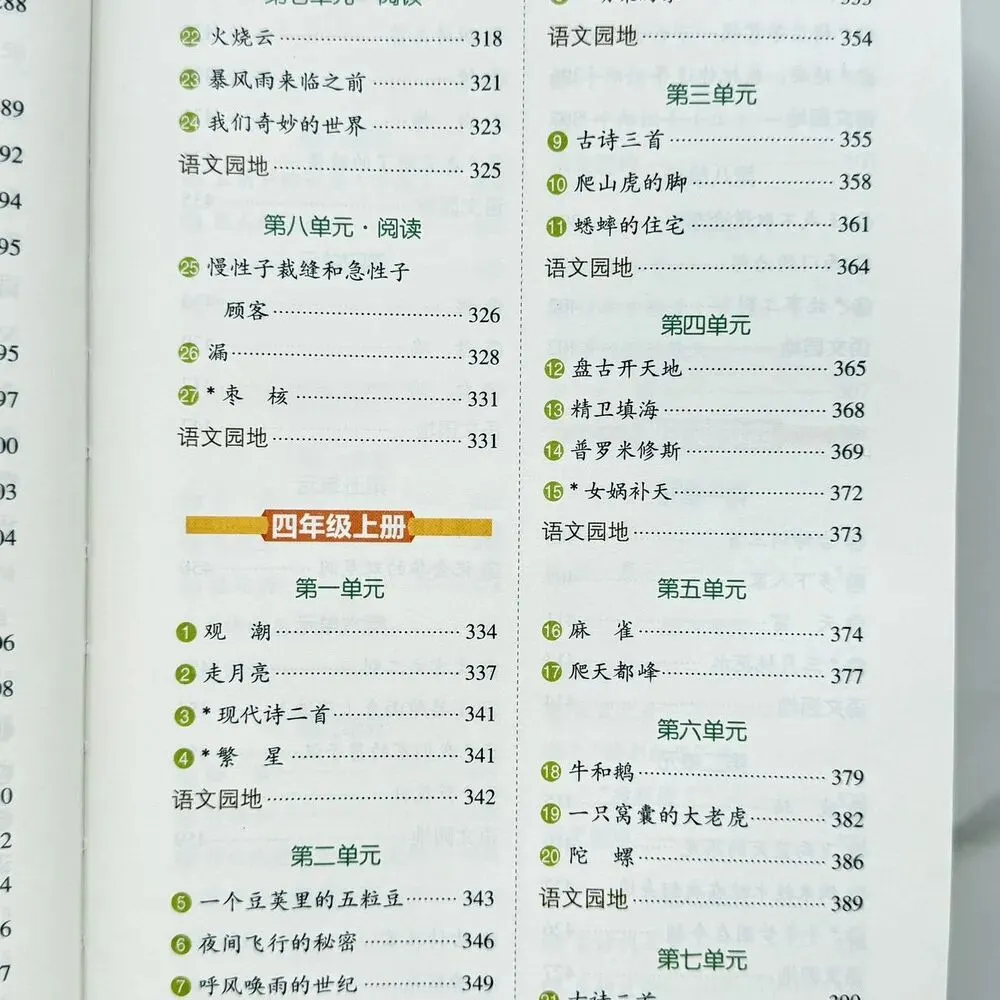 ㉒ 火烧云 318
㉓ 暴风雨来临之前 321
㉔ 我们奇妙的世界 323
语文园地 325
第八单元·阅读
㉕ 慢性子裁缝和急性子
顾客 326
㉖ 漏 328
㉗ *枣 核 331
语文园地 331
四年级上册
第一单元
① 观 潮 334
② 走月亮 337
③ *现代诗二首 341
④ *繁 星 341
语文园地 342
第二单元
⑤ 一个豆荚里的五粒豆 343
⑥ 夜间飞行的秘密 346
⑦ 呼风唤雨的世纪 349
语文园地 354
第三单元
⑨ 古诗三首 355
⑩ 爬山虎的脚 358
⑪ 蟋蟀的住宅 361
语文园地 364
第四单元
⑫ 盘古开天地 365
⑬ 精卫填海 368
⑭ 普罗米修斯 369
⑮ *女娲补天 372
语文园地 373
第五单元
⑯ 麻 雀 374
⑰ 爬天都峰 377
第六单元
⑱ 牛和鹅 379
⑲ 一只窝囊的大老虎 382
⑳ 陀 螺 386
语文园地 389
第七单元